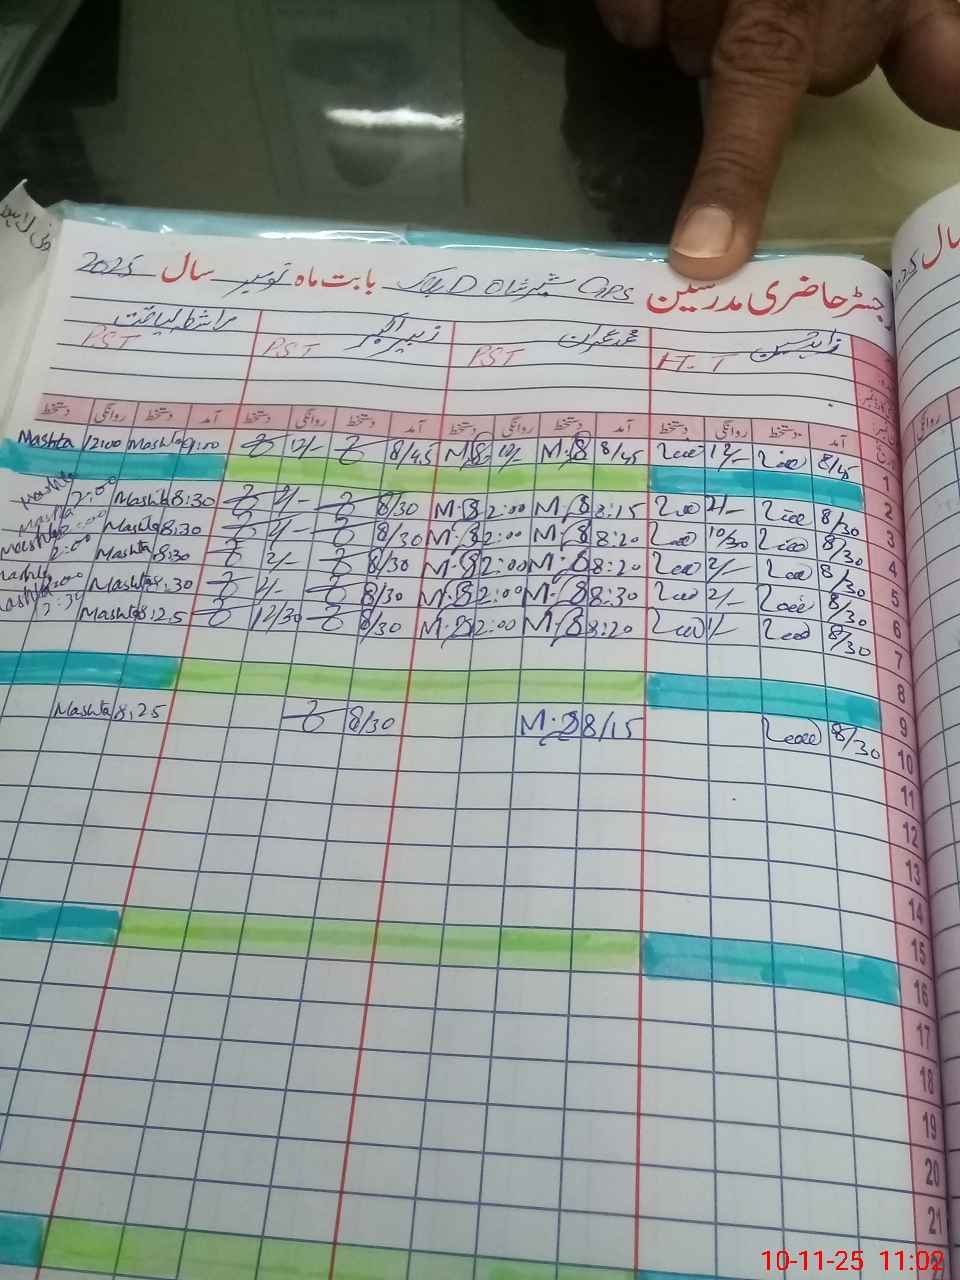 رجسٹر حاضری مدرسین GPS شیر شاہ D بلاک بابت ماہ نومبر سال 2025
زاہد حسین محمد عمران زبیر اکبر ماشطہ لیاقت
H.T PST PST PST
آمد دستخط روانگی دستخط آمد دستخط روانگی دستخط آمد دستخط روانگی دستخط آمد دستخط روانگی دستخط
1 8/45 12/- 8/45 M.S 10/- M.S 8/45 12/- 9:00 Mashta 12:00 Mashta
2
3 8/30 2/- 8:15 M.S 2:00 M.S 8/30 2/- 8:30 Mashta 2:00 Mashta
4 8/30 10/30 8:20 M.S 2:00 M.S 8/30 2/- 8:30 Mashta 2:00 Mashta
5 8/30 2/- 8:20 M.S 2:00 M.S 8/30 2/- 8:30 Mashta 2:00 Mashta
6 8/30 2/- 8:30 M.S 2:00 M.S 8/30 2/- 8:30 Mashta 2:00 Mashta
7 8/30 1/- 8:20 M.S 2:00 M.S 8/30 12/30 8:25 Mashta Mashta
8
9
10 8/30 8/15 M.S 8/30 8:25 Mashta
11
12
13
14
15
16
17
18
19
20
21
سال
2025
روانگی
10-11-25 11:02